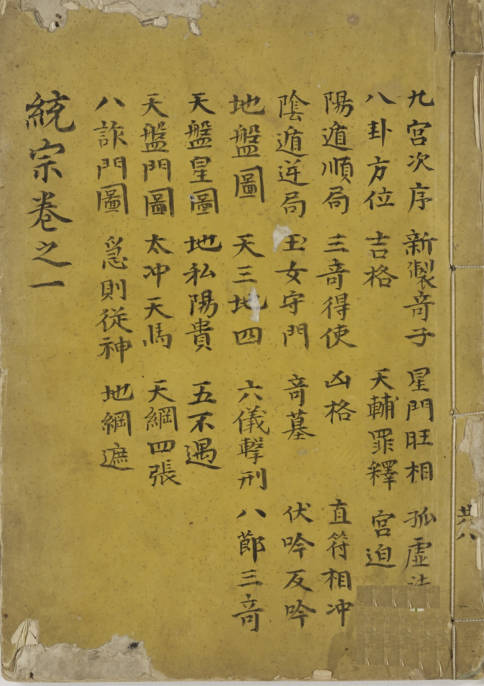 九宮次序 新製竒子 星門旺相 孤虛法
八卦方位 吉格 天輔罪釋 宮迫
陽遁順局 三竒得使 凶格 直符相冲
陰遁逆局 玉女守門 竒墓 伏吟反吟
地盤圖 天三地四 六儀擊刑 八節三竒
天盤星圖 地私陽貴 五不遇
天盤門圖 太冲天馬 天網四張
八詐門圖 急則從神 地網遮
統宗卷之一
共八